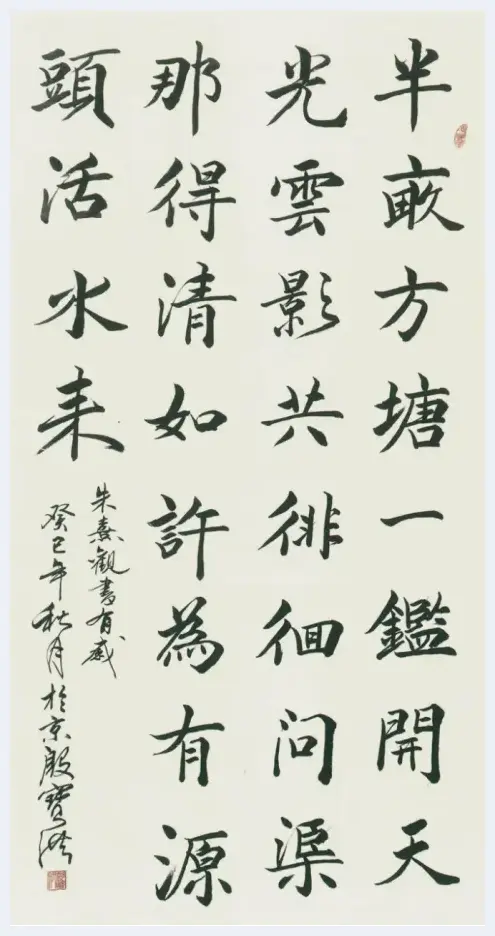 半畝方塘一鑑開天
光雲影共徘徊问渠
那得清如許為有源
頭活水来
朱熹觀書有感
癸巳年秋月於京殷寶洪